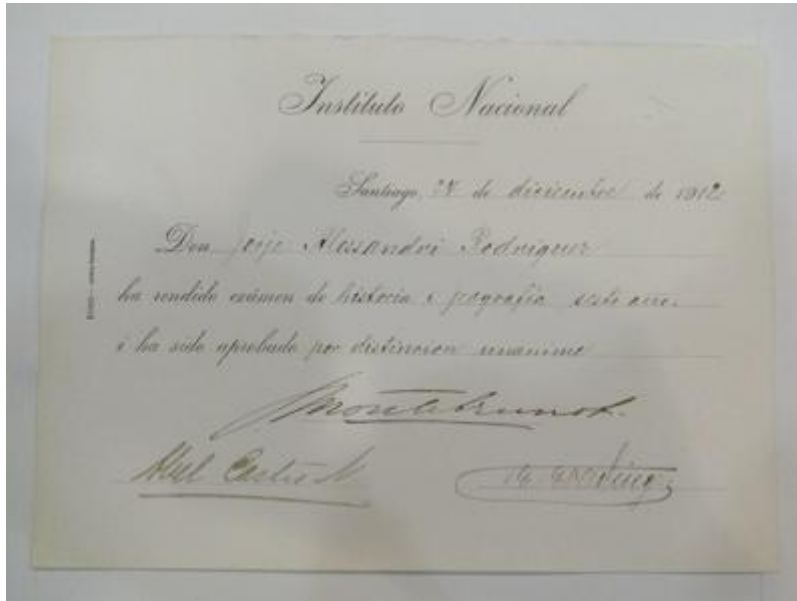 Instituto Nacional
Santiago, de diciembre de 1912
Don Jorje Alessandri Rodriguez
ha rendido exámen de historia i jeografía sesto año.
i ha sido aprobado por distincion unanime
Montebruno L.
Abel Castro N.